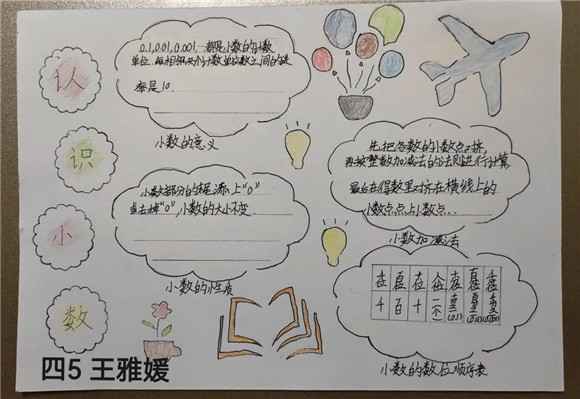 认
识
小
数
0.1,0.01,0.001,…都是小数的计数
单位.每相邻两个计数单位之间的进
率是10.
小数的意义
小数部分的末尾添上"0"
或去掉"0",小数的大小不变.
小数的性质
先把各数的小数点对齐,
再按整数加减法的法则进行计算
最后在得数里对齐在横线上的
小数点,点上小数点.
小数加减法
千位 百位 十位 个位 十分位 百分位 千分位
千 百 十 一(个)
小数的数位顺序表
四5 王雅媛